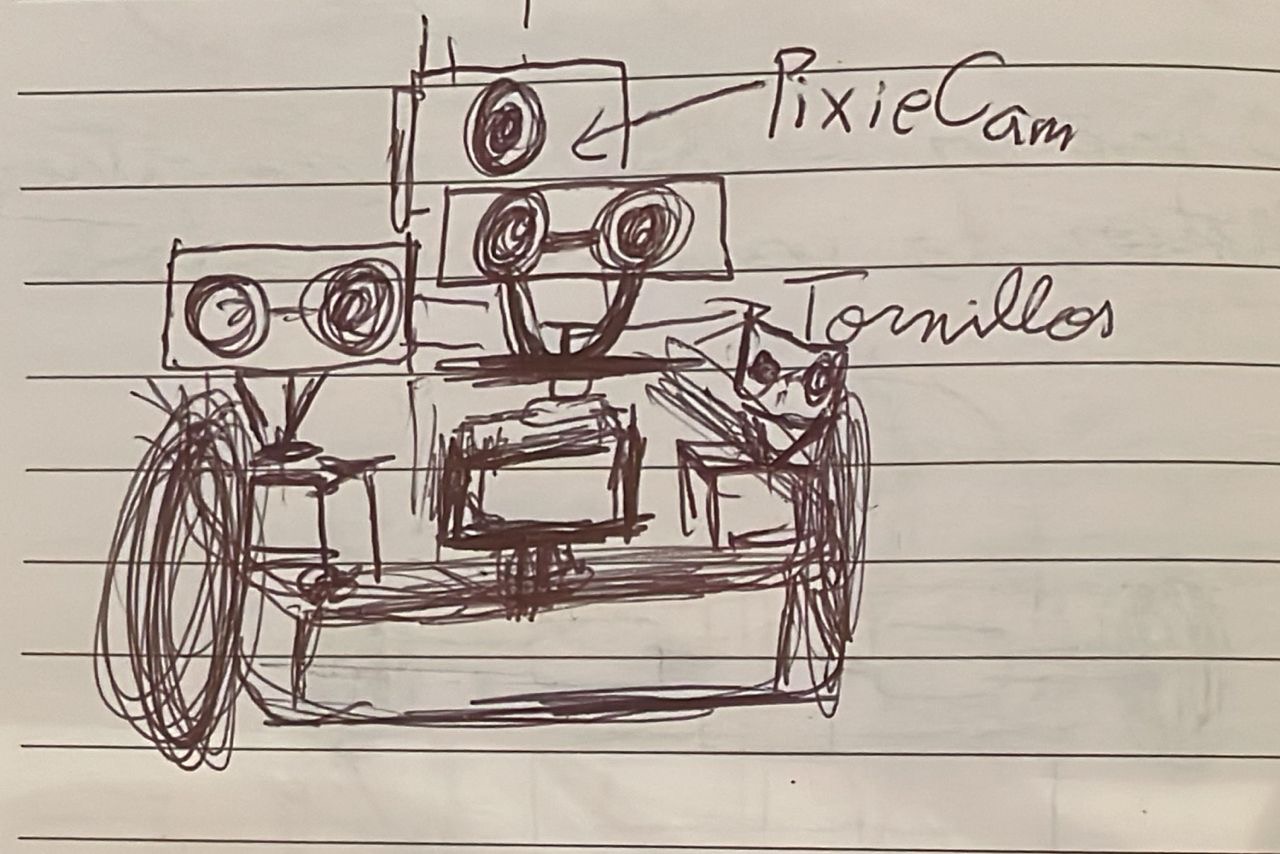 PixieCam
Tornillos